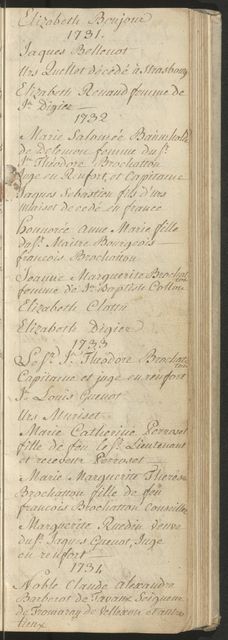 Elizabeth Bonjour
1731.
Jaques Bellenot
Urs Quellot décédé à Strasbourg
Elizabeth Renaud femme de
Jn Digier
1732
Marie Salomée
de femme du Sr
Jn Théodore Brochatton
Juge en Renfort et Capitaine
Jaques Sebastien fils d'Urs
Muiset decedé en france
honnorée Anne Marie fille
du Sr Maitre Bourgeois
françois Brochatton
Jeanne Marguerite Brochatton
femme de Jn Baptiste
Elizabeth
Elizabeth Digier
1733
Le Sr Jn Théodore Brochatton
Capitaine et juge en renfort
Jn Louis Guenot
Urs Muriset
Marie Catherine Perroset
fille de feu le Sr Lieutenant
et receveur Perroset
Marie Marguerite Therese
Brochatton fille de feu
françois Brochatton Conseiller
Marguerite Ruedin veuve
du Sr Jaques Guenot, Juge
en renfort
1734
Noble Claude Alexandre
Barberot de Tavaux Seigneur
de Vellexon et autres
lieux